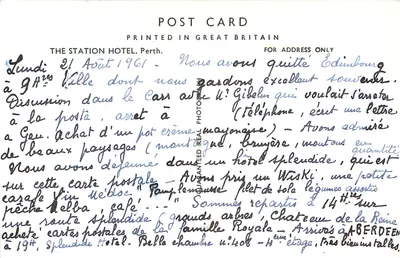 POST CARD
PRINTED IN GREAT BRITAIN
THE STATION HOTEL, Perth.
FOR ADDRESS ONLY
Lundi 21 Août 1961 - Nous avons quitté Edimbourg
à 9 Hres Ville dont nous gardons excellent souvenir.
Discussion dans le Carr avec Mr Gibelin qui voulait s'arrêter
à la poste, arrêt à (téléphone, écrit une lettre
a Gen. Achat d'un pot crème mayonaise) - Avons admiré
de beaux paysages (montagne, bruyère, moutons en quantité
Nous avons déjeuné dans un hôtel splendide, qui est
sur cette carte postale - Avons pris un Wiski, une petite
Pamplemousse, filet de sole légumes assortis
pêche Melba café ... " Sommes repartis à 14 Hres sur
une route splendide (grands arbres), Chateau de la Reine
acheté cartes postales de la famille Royale - Arrivés à ABERDEEN
à 19H. Splendide Hotel. Belle chambre N° 408 - 4ème étage, très bien installés.